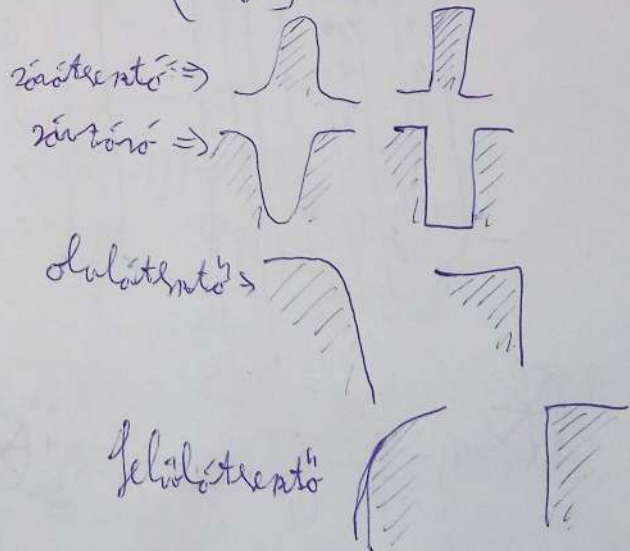 záróáteresztő ⇒
sávzáró ⇒
aluláteresztő ⇒
felüláteresztő